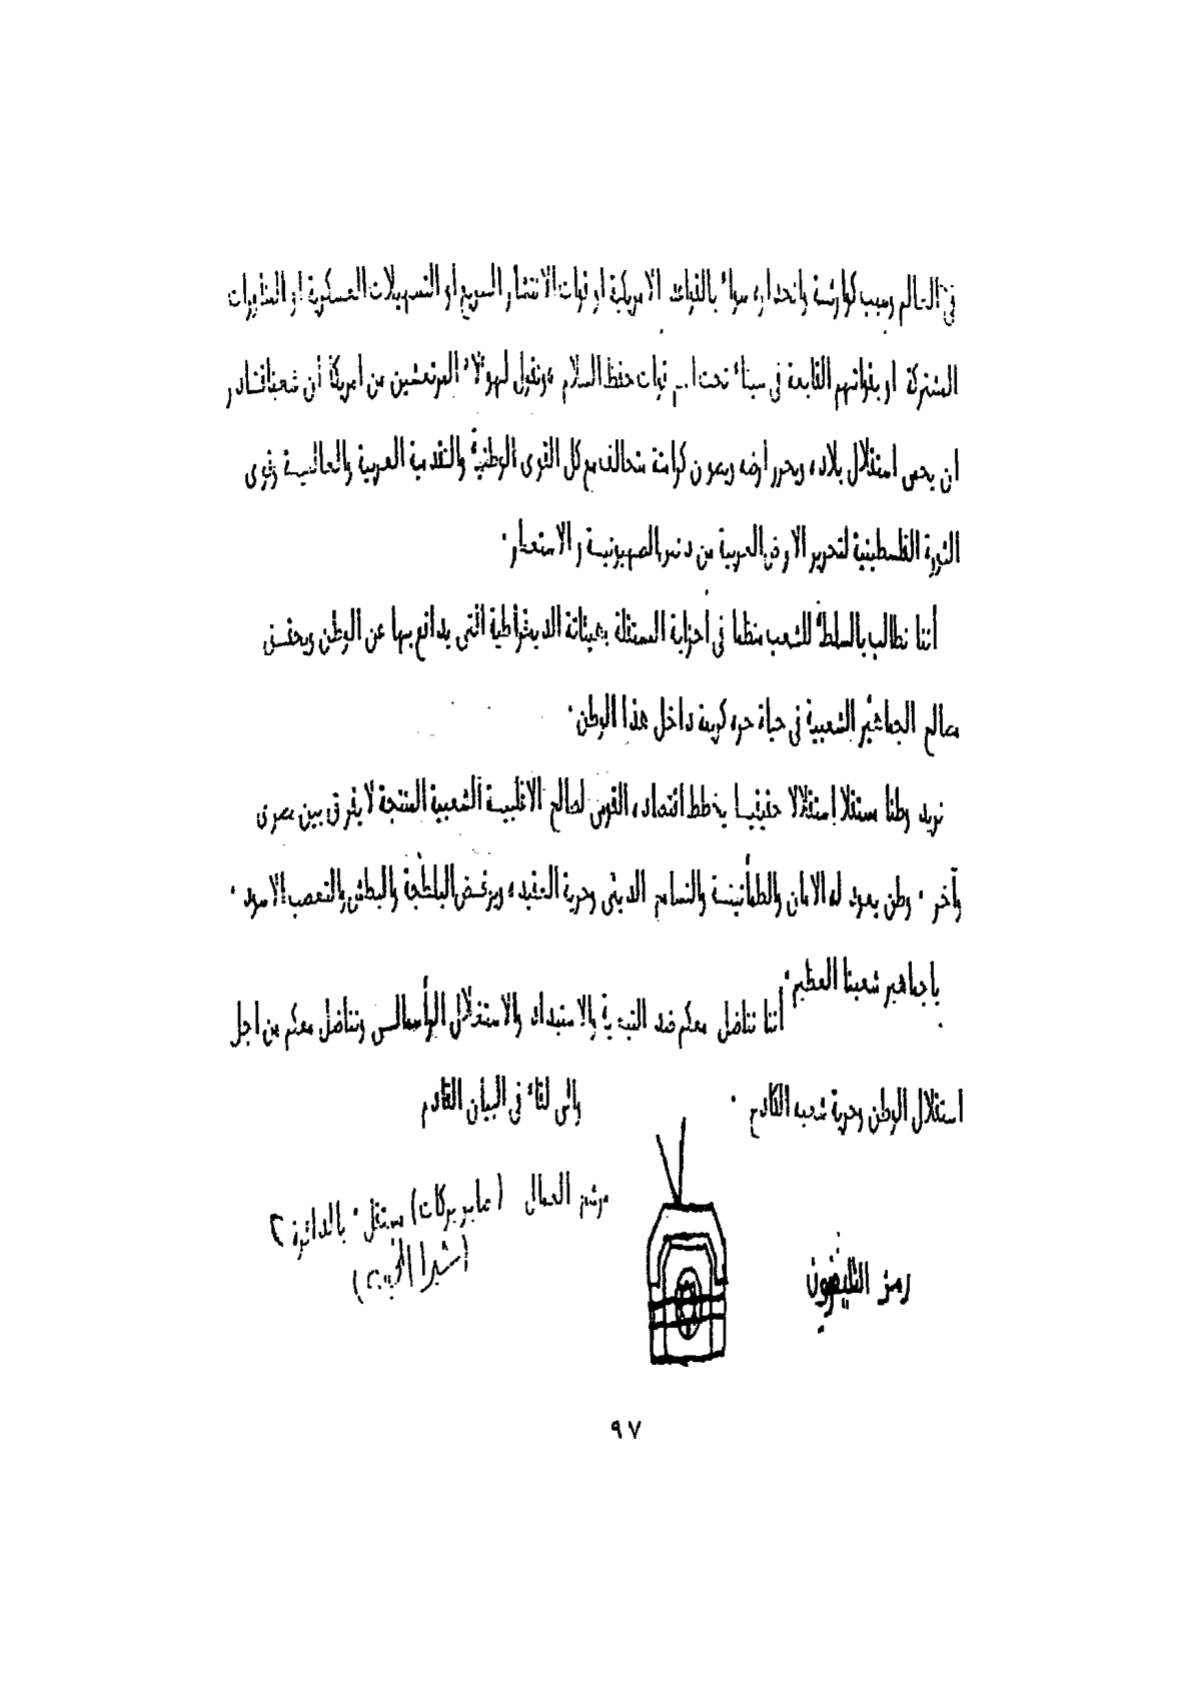 فى العالم وسبب كوارثة وانحداره سواء بالقواعد الامريكية او قوات الانتشار السريع او التسهيلات العسكرية او المناورات
المشتركة او بقواتهم القابعة فى سيناء تحت اسم قوات حفظ السلام ، ونقول لهؤلاء المرتعشين من امريكا أن شعبنا قادر
ان يحمى استقلال بلاده ويحرر ارضه ويصون كرامتة متحالف مع كل القوى الوطنية والتقدمية العربية والعالمية وقوى
الثورة الفلسطينية لتحرير الارض العربية من دنس الصهيونية والاستعمار .
أننا نطالب بالسلطة للشعب منظما فى أحزابة المستقلة وهيئاتة الديمقراطية التى يدافع بها عن الوطن ويحقق
مصالح الجماهير الشعبية فى حياة حره كريمة داخل هذا الوطن .
نريد وطنا مستقلا إستقلالا حقيقيا يخطط اقتصاده القومى لصالح الاغلبية الشعبية المنتجة لا يفرق بين مصرى
وآخر . وطن يعود له الامان والطمأنينة والتسامح الدينى وحرية العقيده ويرفض البلطجة والبطش والتعصب الاسود .
ياجماهير شعبنا العظيم .
أننا نناضل معكم ضد التبعية والاستبداد والاستغلال الرأسمالى ونناضل معكم من اجل
استقلال الوطن وحرية شعبه الكادح .
والى لقاء فى البيان القادم
مرشح العمال (صابر بركات) مستقل . بالدائرة ٢
(شبرا الخيمة)
رمز التليفزيون
٩٧